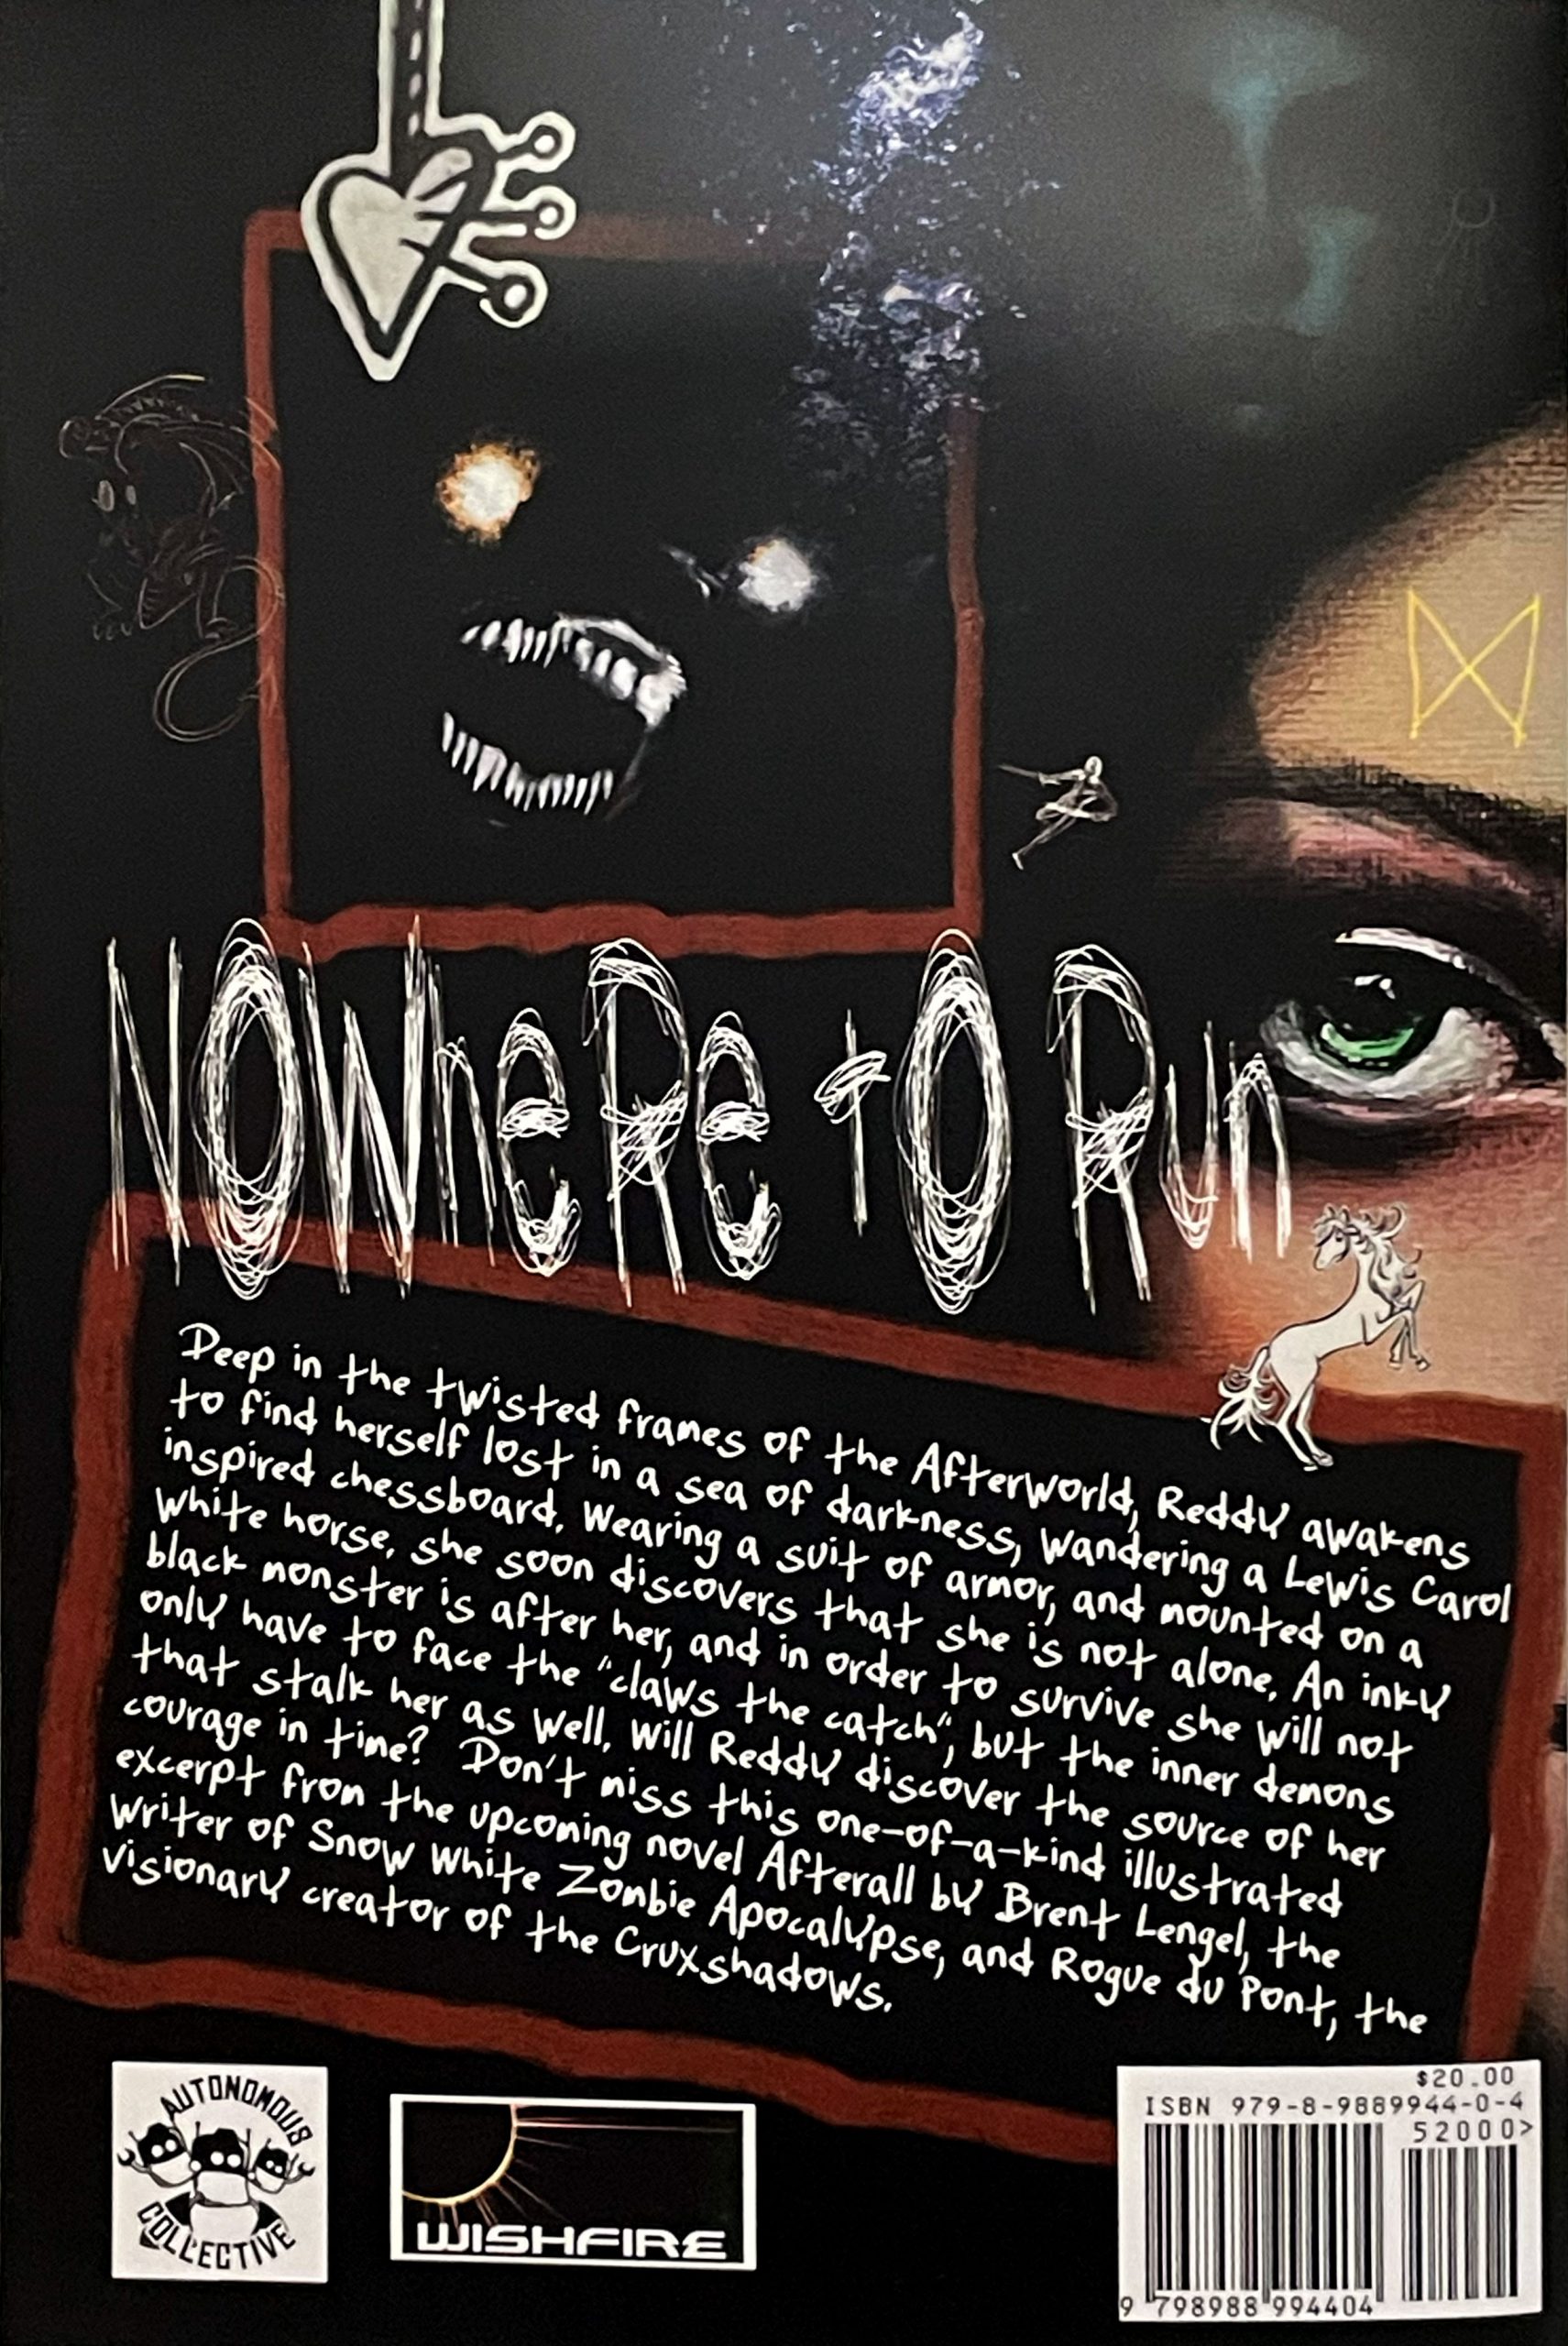 NOWheRe tO Run
Deep in the twisted frames of the Afterworld, Reddy awakens
to find herself lost in a sea of darkness, Wandering a Lewis Carol
inspired chessboard. Wearing a suit of armor, and mounted on a
white horse, she soon discovers that she is not alone. An inky
black monster is after her, and in order to survive she will not
only have to face the "claws the catch", but the inner demons
that stalk her as well. Will Reddy discover the source of her
courage in time? Don't miss this one-of-a-kind illustrated
excerpt from the upcoming novel Afterall by Brent Lengel, the
writer of Snow White Zombie Apocalypse, and Rogue du Pont, the
visionary creator of the Cruxshadows.
AUTONOMOUS
COLLECTIVE
WISHFIRE
$20.00
ISBN 979-8-9889944-0-4
52000>
9 798988 994404